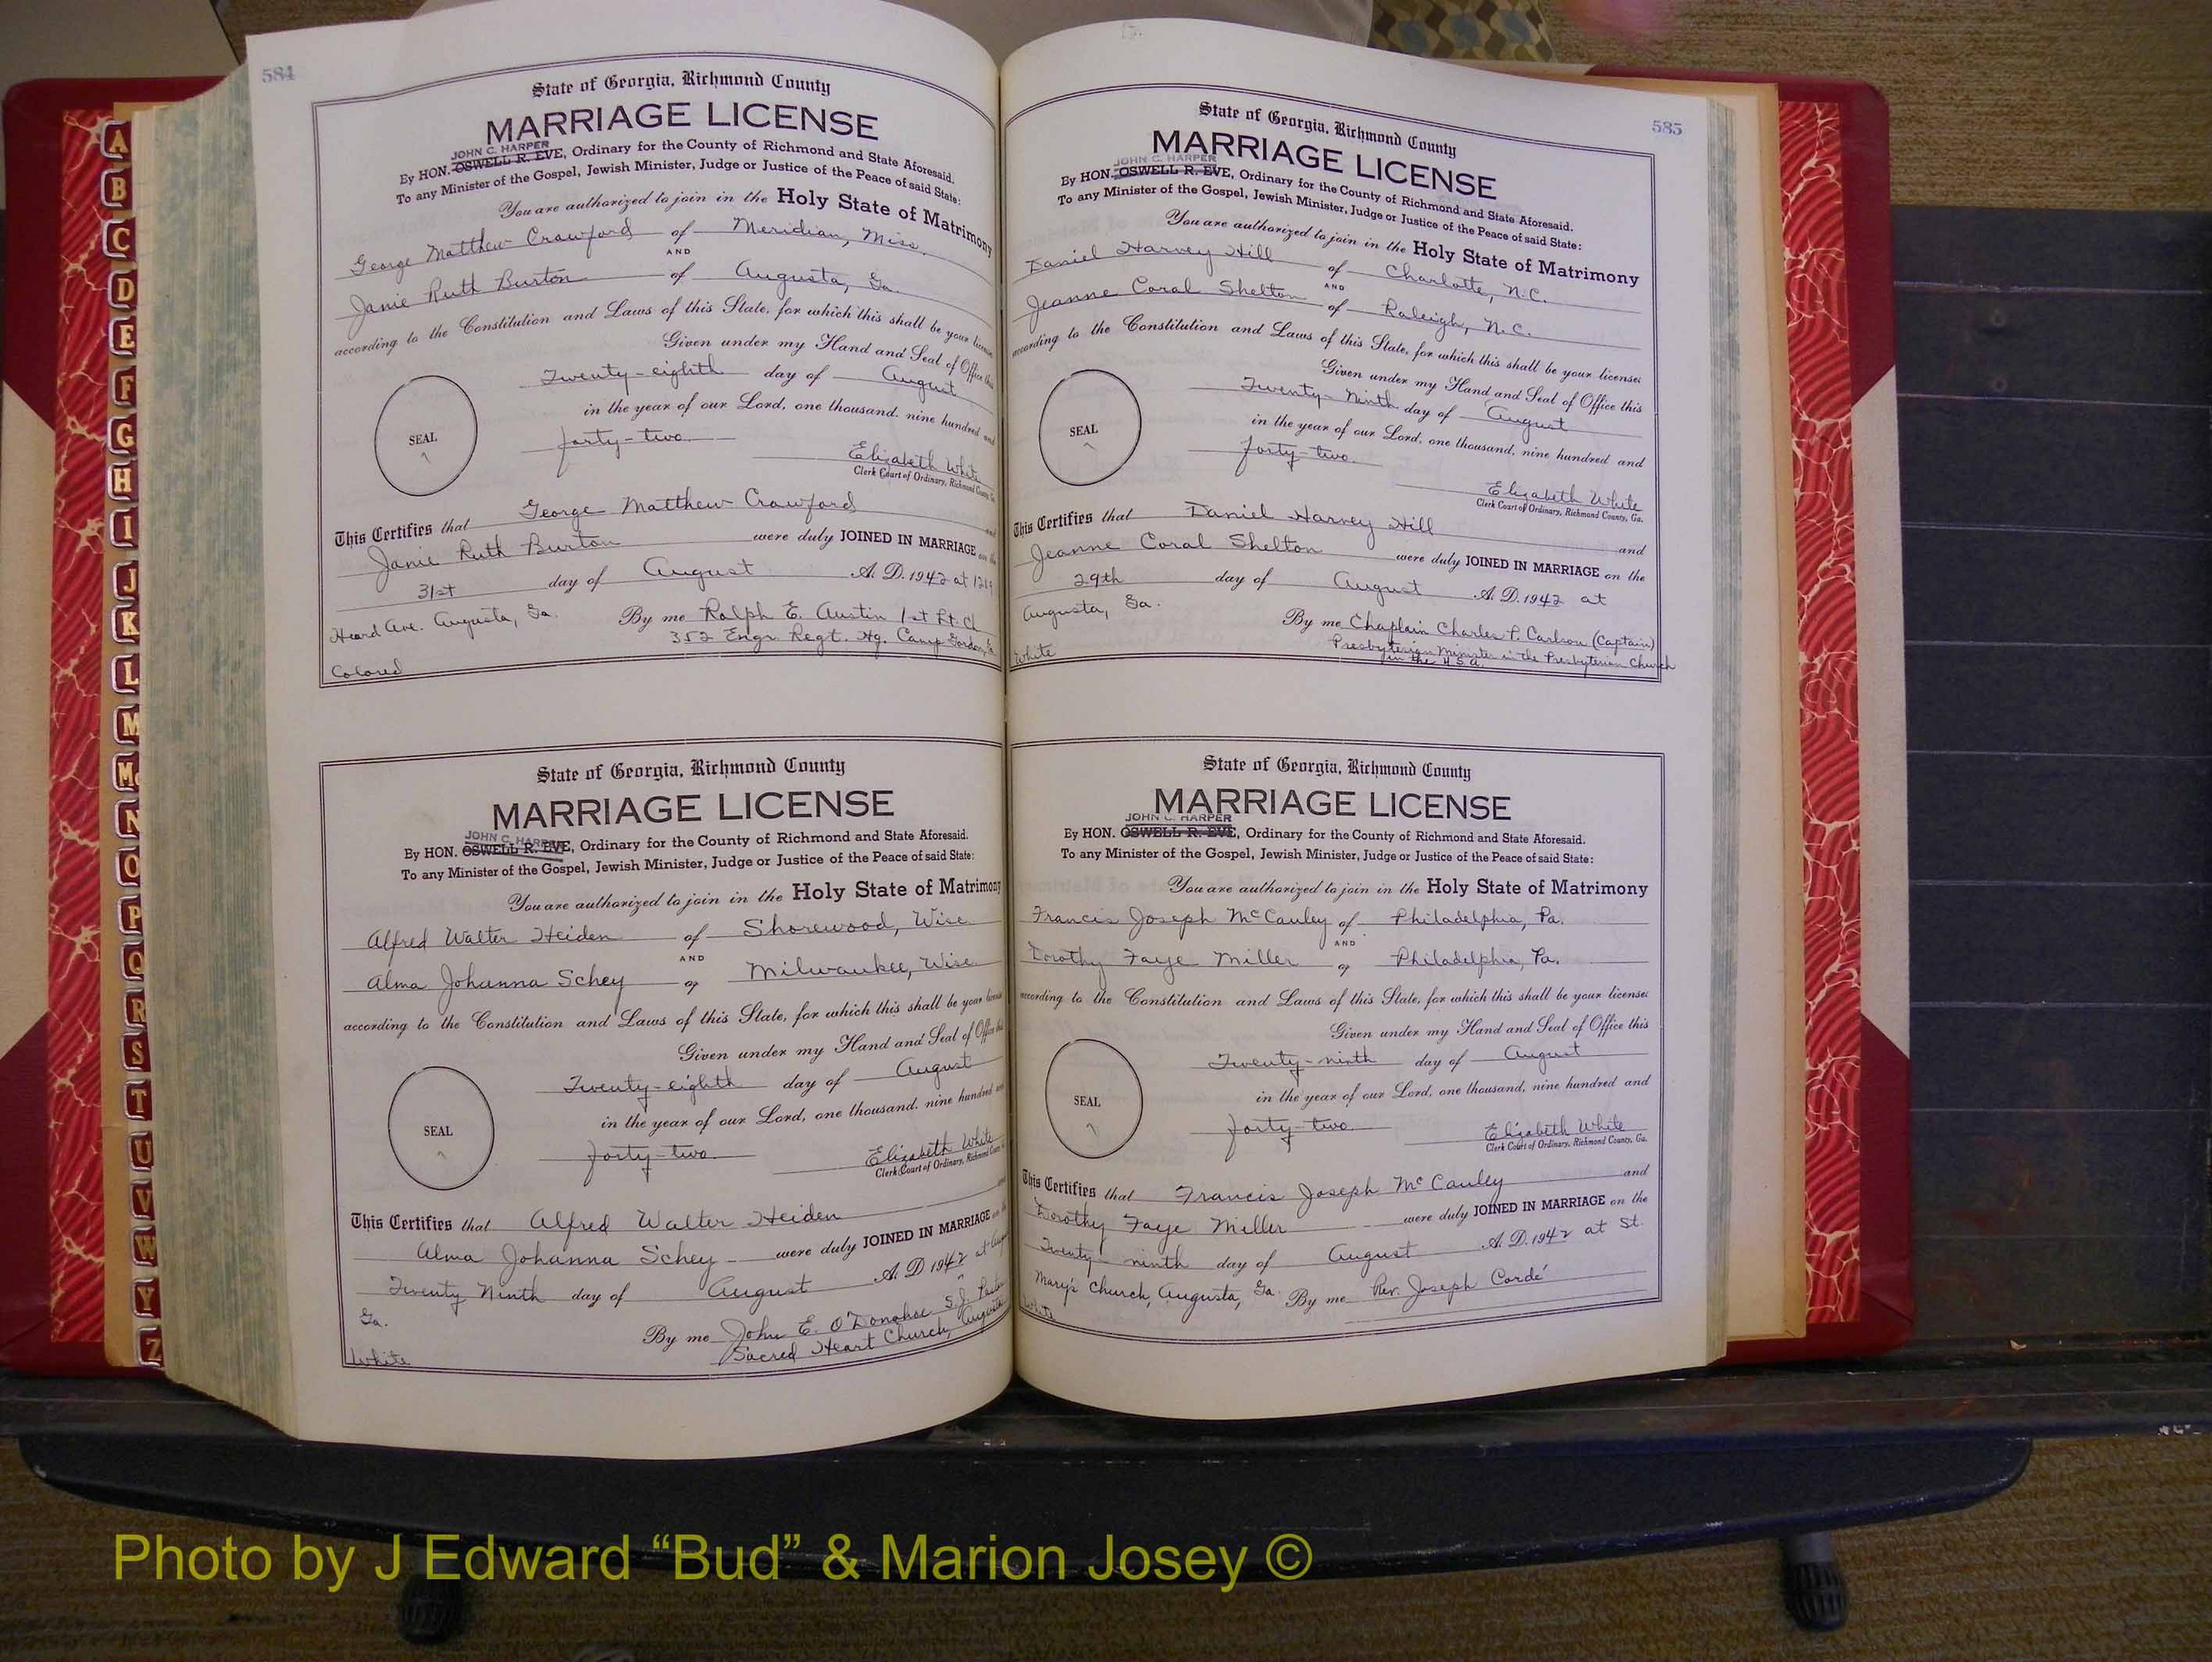 584
State of Georgia, Richmond County
MARRIAGE LICENSE
JOHN C. HARPER
By HON. OSWELL R. EVE, Ordinary for the County of Richmond and State Aforesaid.
To any Minister of the Gospel, Jewish Minister, Judge or Justice of the Peace of said State:
You are authorized to join in the Holy State of Matrimony
George Matthew Crawford of Meridian, Miss.
AND
Janie Ruth Burton of Augusta, Ga.
according to the Constitution and Laws of this State, for which this shall be your license
Given under my Hand and Seal of Office this
Twenty-eighth day of August
in the year of our Lord, one thousand, nine hundred and
forty-two
SEAL
Elizabeth White
Clerk Court of Ordinary, Richmond County, Ga.
This Certifies that George Matthew Crawford and
Janie Ruth Burton were duly JOINED IN MARRIAGE on the
31st day of August A. D. 1942 at 1219
Heard Ave. Augusta, Ga. By me Ralph E. Austin 1st Lt. Ch
352 Engr. Regt. Hq. Camp Gordon, Ga
Colored
State of Georgia, Richmond County
MARRIAGE LICENSE
JOHN C. HARPER
By HON. OSWELL R. EVE, Ordinary for the County of Richmond and State Aforesaid.
To any Minister of the Gospel, Jewish Minister, Judge or Justice of the Peace of said State:
You are authorized to join in the Holy State of Matrimony
Alfred Walter Heiden of Shorewood, Wisc
AND
Alma Johanna Schey of Milwaukee, Wisc.
according to the Constitution and Laws of this State, for which this shall be your license
Given under my Hand and Seal of Office this
Twenty-eighth day of August
in the year of our Lord, one thousand, nine hundred and
forty-two
SEAL
Elizabeth White
Clerk Court of Ordinary, Richmond County
This Certifies that Alfred Walter Heiden and
Alma Johanna Schey were duly JOINED IN MARRIAGE on the
Twenty Ninth day of August A. D 1942 at
Ga. By me John E. O'Donohoe S.J. Pastor
Sacred Heart Church, Augusta
White
585
State of Georgia, Richmond County
MARRIAGE LICENSE
JOHN C. HARPER
By HON. OSWELL R. EVE, Ordinary for the County of Richmond and State Aforesaid.
To any Minister of the Gospel, Jewish Minister, Judge or Justice of the Peace of said State:
You are authorized to join in the Holy State of Matrimony
Daniel Harvey Hill of Charlotte, N.C.
AND
Jeanne Coral Shelton of Raleigh, N.C.
according to the Constitution and Laws of this State, for which this shall be your license:
Given under my Hand and Seal of Office this
Twenty-Ninth day of August
in the year of our Lord, one thousand, nine hundred and
forty-two
SEAL
Elizabeth White
Clerk Court of Ordinary, Richmond County, Ga.
This Certifies that Daniel Harvey Hill and
Jeanne Coral Shelton were duly JOINED IN MARRIAGE on the
29th day of August A. D. 1942 at
Augusta, Ga. By me Chaplain Charles P. Carlson (Captain)
Presbyterian Minister in the Presbyterian Church
in the U.S.A.
White
State of Georgia, Richmond County
MARRIAGE LICENSE
JOHN C. HARPER
By HON. OSWELL R. EVE, Ordinary for the County of Richmond and State Aforesaid.
To any Minister of the Gospel, Jewish Minister, Judge or Justice of the Peace of said State:
You are authorized to join in the Holy State of Matrimony
Francis Joseph McCauley of Philadelphia, Pa.
AND
Dorothy Faye Miller of Philadelphia, Pa.
according to the Constitution and Laws of this State, for which this shall be your license:
Given under my Hand and Seal of Office this
Twenty-ninth day of August
in the year of our Lord, one thousand, nine hundred and
forty-two
SEAL
Elizabeth White
Clerk Court of Ordinary, Richmond County, Ga.
This Certifies that Francis Joseph McCauley and
Dorothy Faye Miller were duly JOINED IN MARRIAGE on the
Twenty-ninth day of August A. D. 1942 at St.
Mary's Church, Augusta, Ga. By me Rev. Joseph Cordé
White
A
B
C
D
E
F
G
H
I
J
K
L
M
Mc
N
O
P
Q
R
S
T
U
V
W
Y
Z
Photo by J Edward “Bud” & Marion Josey ©